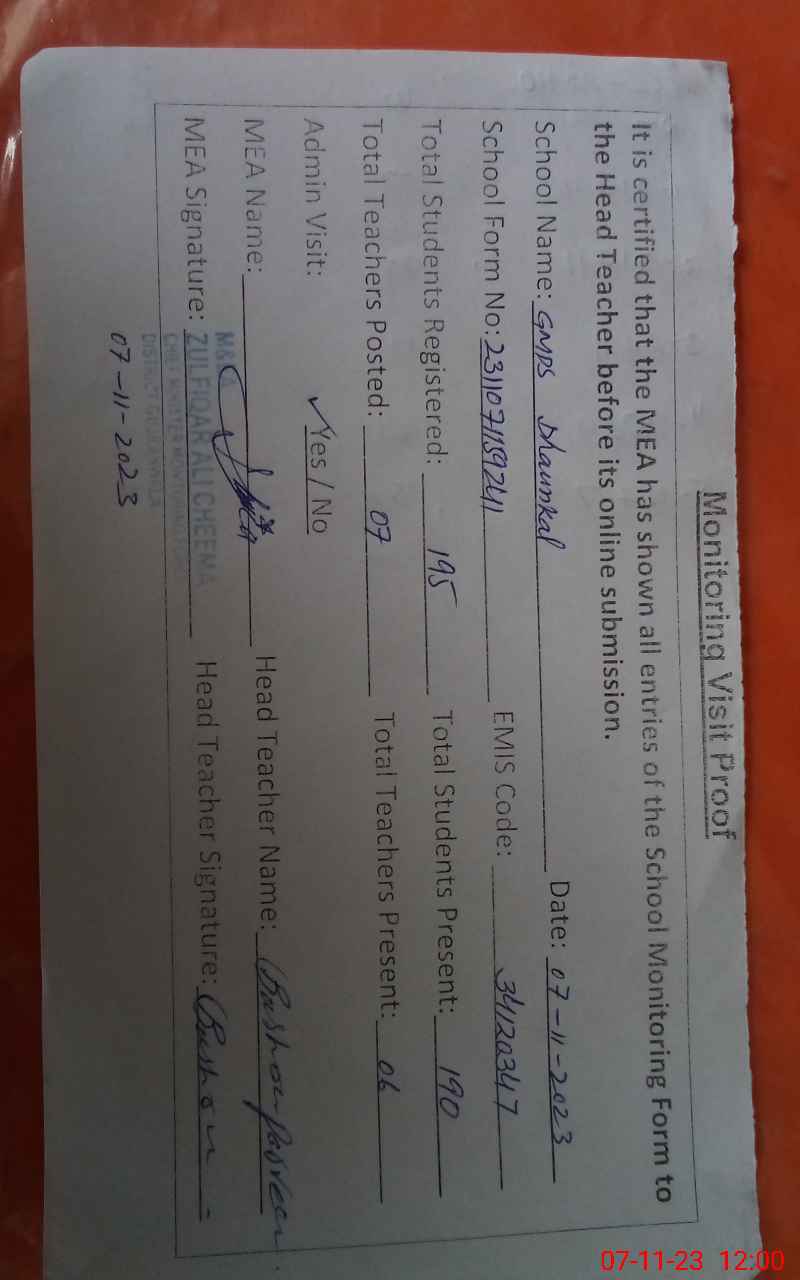 Monitoring Visit Proof
It is certified that the MEA has shown all entries of the School Monitoring Form to
the Head Teacher before its online submission.
School Name: GMPS Dhaunkal Date: 07-11-2023
School Form No: 2311071159241 EMIS Code: 34120347
Total Students Registered: 195 Total Students Present: 190
Total Teachers Posted: 07 Total Teachers Present: 06
Admin Visit: ✓Yes / No
MEA Name: Head Teacher Name: Bushra Parveen
MEA Signature: Head Teacher Signature: Bushra
M&EA
ZULFIQAR ALI CHEEMA
CHIEF MINISTER MONITORING
DISTRICT GUJRANWALA
07-11-2023
07-11-23 12:00